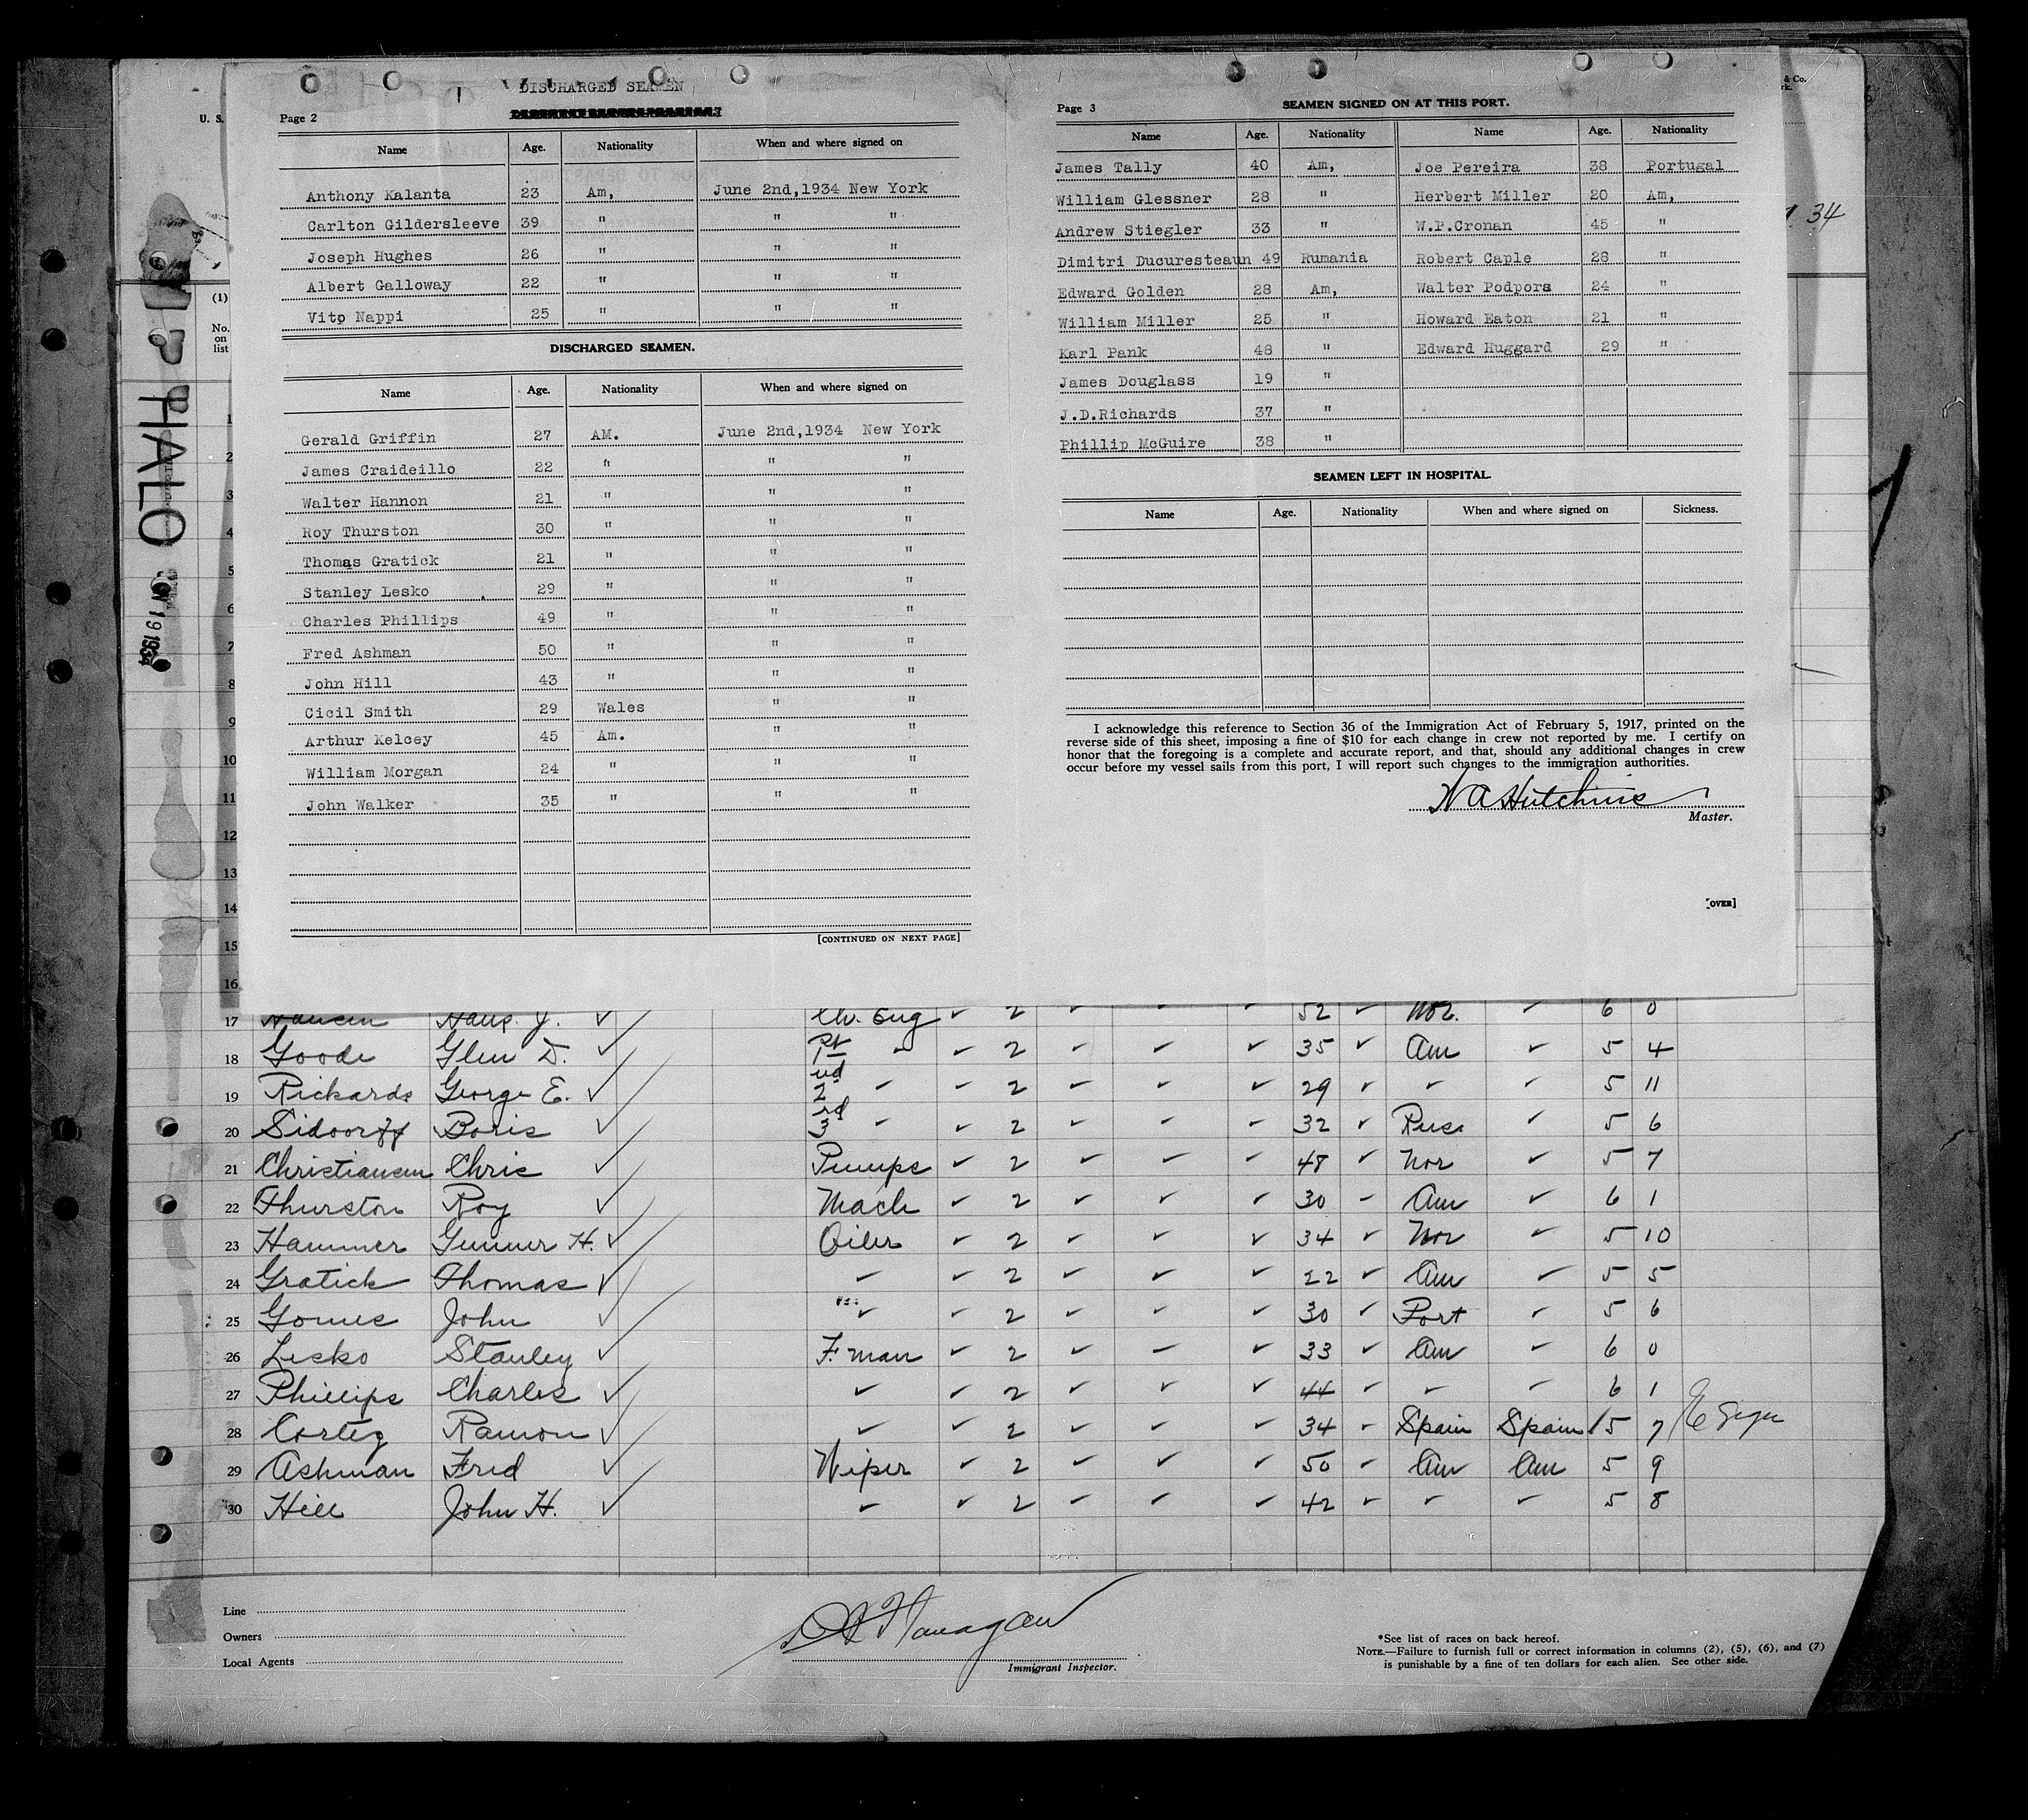 DISCHARGED SEAMEN
Page 2
Name Age. Nationality When and where signed on
Anthony Kalanta 23 Am, June 2nd,1934 New York
Carlton Gildersleeve 39 " " "
Joseph Hughes 26 " " "
Albert Galloway 22 " " "
Vito Nappi 25 " " "
DISCHARGED SEAMEN.
Name Age. Nationality When and where signed on
Gerald Griffin 27 AM. June 2nd,1934 New York
James Craideillo 22 " " "
Walter Hannon 21 " " "
Roy Thurston 30 " " "
Thomas Gratick 21 " " "
Stanley Lesko 29 " " "
Charles Phillips 49 " " "
Fred Ashman 50 " " "
John Hill 43 " " "
Cicil Smith 29 Wales " "
Arthur Kelcey 45 Am. " "
William Morgan 24 " " "
John Walker 35 " " "
[CONTINUED ON NEXT PAGE]
Page 3
SEAMEN SIGNED ON AT THIS PORT.
Name Age. Nationality Name Age. Nationality
James Tally 40 Am, Joe Pereira 38 Portugal
William Glessner 28 " Herbert Miller 20 Am,
Andrew Stiegler 33 " W.P.Cronan 45 "
Dimitri Ducuresteaun 49 Rumania Robert Caple 28 "
Edward Golden 28 Am, Walter Podpors 24 "
William Miller 25 " Howard Eaton 21 "
Karl Pank 48 " Edward Huggard 29 "
James Douglass 19 "
J.D.Richards 37 "
Phillip McGuire 38 "
SEAMEN LEFT IN HOSPITAL.
Name Age. Nationality When and where signed on Sickness.
I acknowledge this reference to Section 36 of the Immigration Act of February 5, 1917, printed on the
reverse side of this sheet, imposing a fine of $10 for each change in crew not reported by me. I certify on
honor that the foregoing is a complete and accurate report, and that, should any additional changes in crew
occur before my vessel sails from this port, I will report such changes to the immigration authorities.
N A Hutchins
Master.
[OVER]
U. S.
& Co.
34
(1)
No.
on
list
HALO
19 1934
1
2
3
4
5
6
7
8
9
10
11
12
13
14
15
16
17 Hansen Hans. J. Ch. Eng 2 52 Nor. 6 0
18 Goode Glen D. 1st 2 35 Am 5 4
19 Rickards George E. 2nd 2 29 5 11
20 Sidoorff Boris 3rd 2 32 Russ 5 6
21 Christiansen Chris Pumps 2 48 Nor 5 7
22 Thurston Roy Mach 2 30 Am 6 1
23 Hammer Gunner H. Oiler 2 34 Nor 5 10
24 Gratick Thomas 2 22 Am 5 5
25 Gomes John 2 30 Port 5 6
26 Lesko Stanley F. man 2 33 Am 6 0
27 Phillips Charles 2 44 6 1
28 Cortez Ramon 2 34 Spain Spain 5 7
29 Ashman Fred Wiper 2 50 Am Am 5 9
30 Hill John H. 2 42 5 8
Line
Owners
Local Agents
Flanagan
Immigrant Inspector.
*See list of races on back hereof.
NOTE.—Failure to furnish full or correct information in columns (2), (5), (6), and (7)
is punishable by a fine of ten dollars for each alien. See other side.